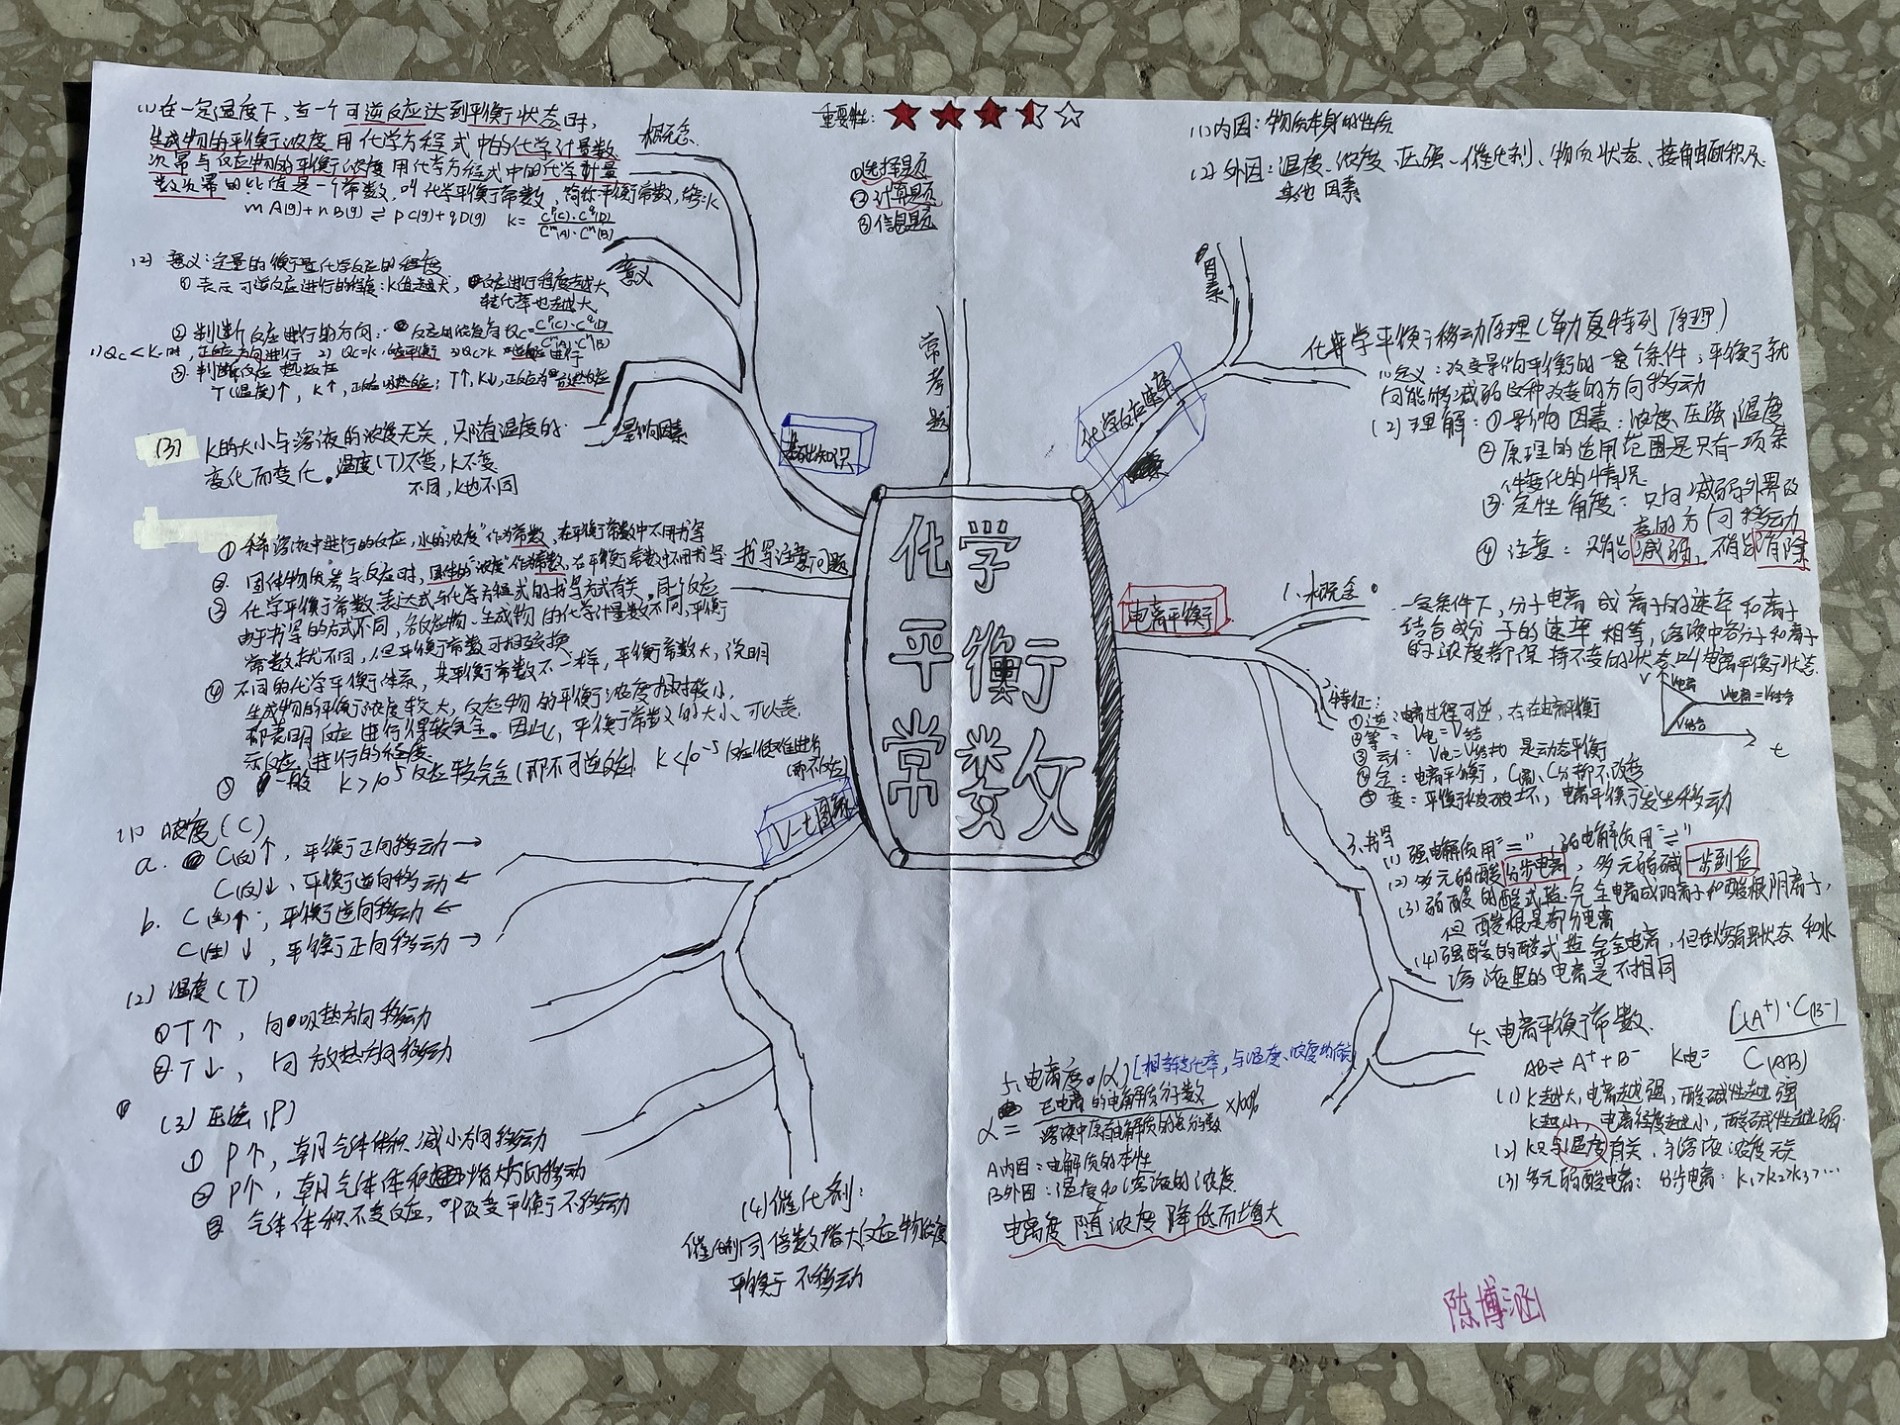 (1) 在一定温度下，当一个可逆反应达到平衡状态时，
生成物的平衡浓度用化学方程式中的化学计量数
次幂与反应物的平衡浓度用化学方程式中的化学计量
数次幂的比值是一个常数，叫化学平衡常数，简称平衡常数，
mA(g)+nB(g)⇌pC(g)+qD(g) K=C^p(C)·C^q(D)/C^m(A)·C^n(B)
概念
(2) 意义：定量的衡量化学反应的程度
① 表示可逆反应进行的程度：K值越大，反应进行程度越大
转化率也越大
② 判断反应进行的方向：
1) Qc<K时，正反应方向进行 2) Qc=K，
③ 判断反应热效应
T(温度)↑，K↑，正反应吸热反应；T↑，K↓，正反应为放热反应
意义
(3) K的大小与溶液的浓度无关，只随温度的
变化而变化。温度(T)不变，K不变
不同，K也不同
影响因素
基础知识
① 稀溶液中进行的反应，水的浓度"作为常数，在平衡常数中不用书写
② 固体物质参与反应时，固体的"浓度"作为常数，在平衡常数中不用书写
③ 化学平衡常数表达式与化学方程式的书写方式有关。同一反应
由于书写的方式不同，各反应物、生成物的化学计量数不同，平衡
常数就不同，但平衡常数可相互换
④ 不同的化学平衡体系，其平衡常数不一样，平衡常数大，说明
生成物的平衡浓度较大，反应物的平衡浓度相对较小，
即表明反应进行得较完全。因此，平衡常数的大小、可以表
示反应进行的程度
⑤ 一般 K>10^5反应较完全(即不可逆反应) K<10^-5反应很难进行
(即不反应)
书写注意问题
V-t图
(1) 浓度(C)
a. C(反)↑，平衡正向移动→
C(反)↓，平衡逆向移动←
b. C(生)↑，平衡逆向移动←
C(生)↓，平衡正向移动→
(2) 温度(T)
①T↑，向吸热方向移动
②T↓，向放热方向移动
(3) 压强(P)
① P↑，朝气体体积减小方向移动
② P↑，朝气体体积增大方向移动
③ 气体体积不变反应，P改变平衡不移动
(4) 催化剂：
催化剂同倍数增大反应物浓度
平衡不移动
重要性：
①选择题
②计算题
③信息题
常考题
化学
平衡
常数
(1) 内因：物质本身的性质
(2) 外因：温度、浓度、压强、催化剂、物质状态、接触面积及
其他因素
因素
化学反应速率
化学平衡移动原理(勒夏特列原理)
(1)定义：改变影响平衡的一个条件，平衡就
向能够减弱这种改变的方向移动
(2) 理解：① 影响因素：浓度、压强、温度
② 原理的适用范围是只有一项条
件变化的情况
③ 定性角度：只向减弱外界改
变的方向移动
④ 注意：只能减弱，不能消除
电离平衡
1. 概念。
一定条件下，分子电离成离子的速率和离子
结合成分子的速率相等，溶液中各分子和离子
的浓度都保持不变的状态叫电离平衡状态
V V电离 V电离=V结合
V结合 t
2.特征：
①逆：电离过程可逆，存在电离平衡
②等：V电=V结
③动：V电=V结 是动态平衡
④定：电离平衡，C离、C分都不改变
⑤变：平衡被破坏，电离平衡发生移动
3.书写
(1) 强电解质用"="，弱电解质用"⇌"
(2) 多元弱酸分步电离，多元弱碱一步到位
(3) 弱酸的酸式盐完全电离成阳离子和酸根阴离子，
但酸根是部分电离
(4) 强酸的酸式盐完全电离，但在熔融状态和水
溶液里的电离是不相同
4. 电离平衡常数
AB⇌A⁺+B⁻ K电=C(A⁺)·C(B⁻)/C(AB)
(1) K越大，电离越强，酸碱性越强
K越小，电离程度越小，酸碱性越弱
(2) K只与温度有关，与溶液浓度无关
(3) 多元弱酸电离：分步电离：K₁>K₂>K₃>…
5. 电离度(α)
α=已电离的电解质分子数/溶液中原有电解质的总分子数×100%
A内因：电解质的本性
B外因：温度和溶液的浓度
电离度随浓度降低而增大
陈博涵